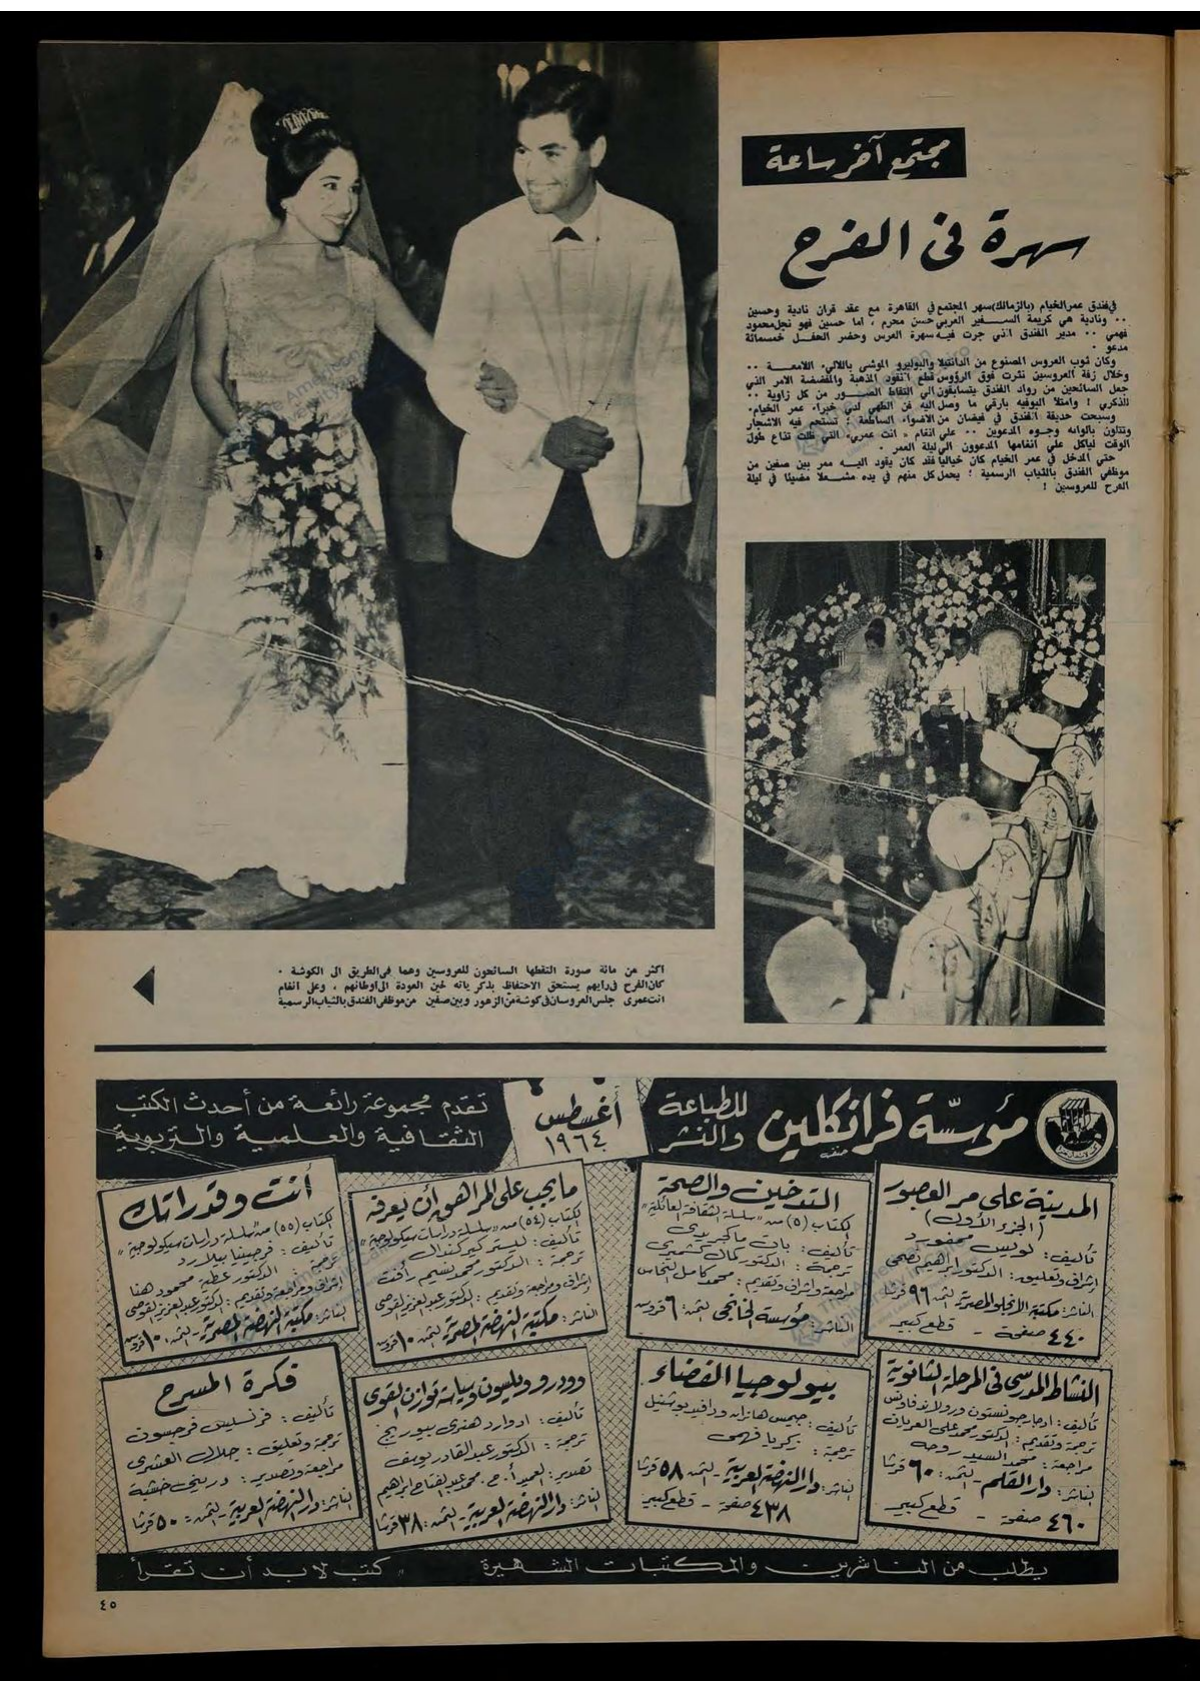 مجتمع آخر ساعة
سهرة فى الفرح
في فندق عمر الخيام (بالزمالك) سهر المجتمع في القاهرة مع عقد قران نادية وحسين
٠٠ ونادية هي كريمة السفير العربي حسن محرم ، اما حسين فهو نجل محمود
فهمي ٠٠ مدير الفندق الذي جرت فيه سهرة العرس وحضر الحفل خمسمائة
مدعو ٠
وكان ثوب العروس المصنوع من الدانتيلا والبوليرو الموشى باللآليء اللامعة ٠٠
وخلال زفة العروسين نثرت فوق الرؤوس قطع النقود الذهبية والمفضضة الامر الذي
جعل السائحين من رواد الفندق يتسابقون الي التقاط الصور من كل زاوية ٠٠
للذكري ! وامتلأ البوفيه بارقي ما وصل اليه فن الطهي لدي خبراء عمر الخيام٠
وسبحت حديقة الفندق في فيضان من الاضواء الساطعة ؛ تستحم فيه الاشجار
وتتلون بالوانه وجوه المدعوين ٠٠ علي انغام « انت عمري» التي ظلت تذاع طول
الوقت لياكل علي انغامها المدعوون الي ليلة العمر ٠
حتى المدخل في عمر الخيام كان خياليا فقد كان يقود اليه ممر بين صفين من
موظفي الفندق بالثياب الرسمية ؛ يحمل كل منهم في يده مشعلا مضيئا في ليلة
الفرح للعروسين !
اكثر من مائة صورة التقطها السائحون للعروسين وهما فى الطريق الى الكوشة ٠
كان الفرح فى رأيهم يستحق الاحتفاظ بذكرياته لحين العودة الى اوطانهم ، وعلى انغام
انت عمرى جلس العروسان فى كوشة من الزهور وبين صفين من موظفى الفندق بالثياب الرسمية
مؤسسة فرانكلين للطباعة والنشر
أغسطس ١٩٦٤
تقدم مجموعة رائعة من أحدث الكتب
الثقافية والعلمية والتربوية
المدينة على مر العصور
(الجزء الأول)
تأليف : لويس ممفورد
إشراف وتعليق : الدكتور ابراهيم نصحى
الناشر : مكتبة الأنجلو المصرية الثمن ٩٦ قرشا
٤٤٠ صفحة - قطع كبير
التدخين والصحة
الكتاب (٥) من "سلسلة الثقافة العائلية"
تأليف : بات ماكجريدى
ترجمة : الدكتور كمال كشميرى
مراجعة واشراف وتقديم : محمد كامل النحاس
الناشر : مؤسسة الخانجى الثمن : ٦ قروش
ما يجب على المراهق أن يعرفه
الكتاب (٥٤) من "سلسلة دراسات سيكولوجية"
تأليف : ليستر كيركندال
ترجمة : الدكتور محمد نسيم رأفت
إشراف ومراجعة وتقديم : الدكتور عبد العزيز القوصى
الناشر : مكتبة النهضة المصرية - الثمن ١٠ قروش
أنت وقدراتك
الكتاب (٥٥) من "سلسلة دراسات سيكولوجية"
تأليف : فرجينيا بيلارد
ترجمة : الدكتور عطية محمود هنا
إشراف ومراجعة وتقديم : الدكتور عبد العزيز القوصى
الناشر : مكتبة النهضة المصرية - الثمن : ١٠ قروش
النشاط المدرسى فى المرحلة الثانوية
تأليف : ادجار جونستون ورولاند فاونس
ترجمة وتقديم : الدكتور محمد على العريان
مراجعة : محمد السيد روحه
الناشر : دار القلم - الثمن : ٦٠ قرشا
٤٦٠ صفحة - قطع كبير
بيولوجيا الفضاء
تأليف : جيمس هانراهان ودافيد بوشنيل
ترجمة : زكريا فهمى
الناشر : دار النهضة العربية - الثمن ٥٨ قرشا
٤٣٨ صفحة - قطع كبير
وودرو ويلسون وسياسة توازن القوى
تأليف : ادوارد هنرى بيوريج
ترجمة : الدكتور عبد القادر يوسف
تصدير : العميد أ . ح . محمد عبد الفتاح ابراهيم
الناشر : دار النهضة العربية - الثمن : ٣٨ قرشا
فكرة المسرح
تأليف : فرنسيس فرجسون
ترجمة وتعليق : جلال العشرى
مراجعة وتصدير : درينى خشبة
الناشر : دار النهضة العربية - الثمن : ٥٠ قرشا
يطلب من الناشرين والمكتبات الشهيرة " كتب لابد أن تقرأ
٤٥